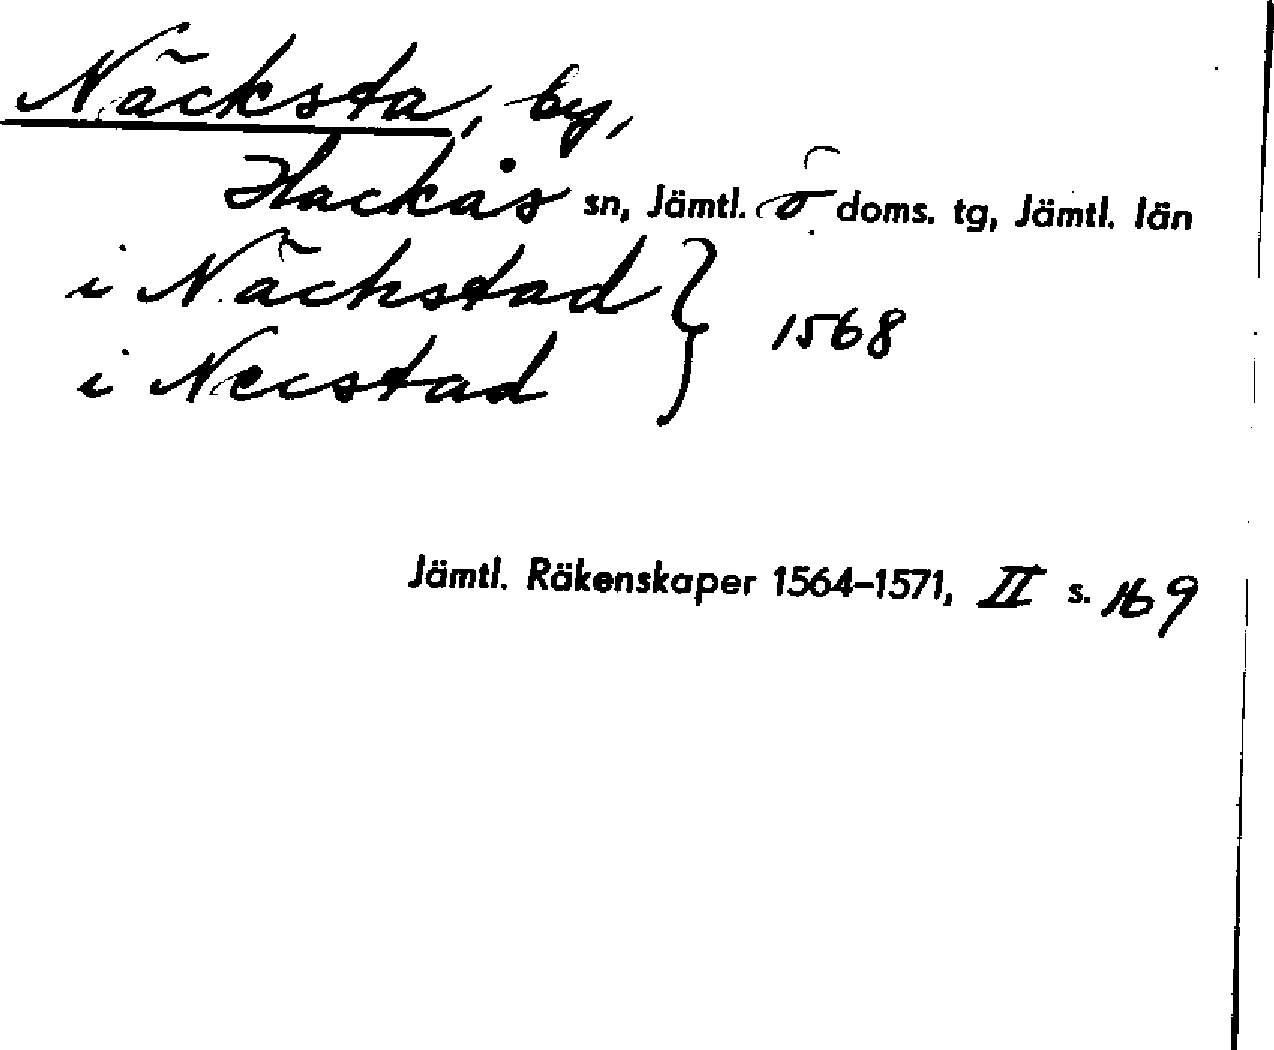 Näcksta, by,
Hackås sn, Jämtl. ö doms. tg, Jämtl. län
i Näckstad } 1568
i Necstad
Jämtl. Räkenskaper 1564–1571, II s. 169